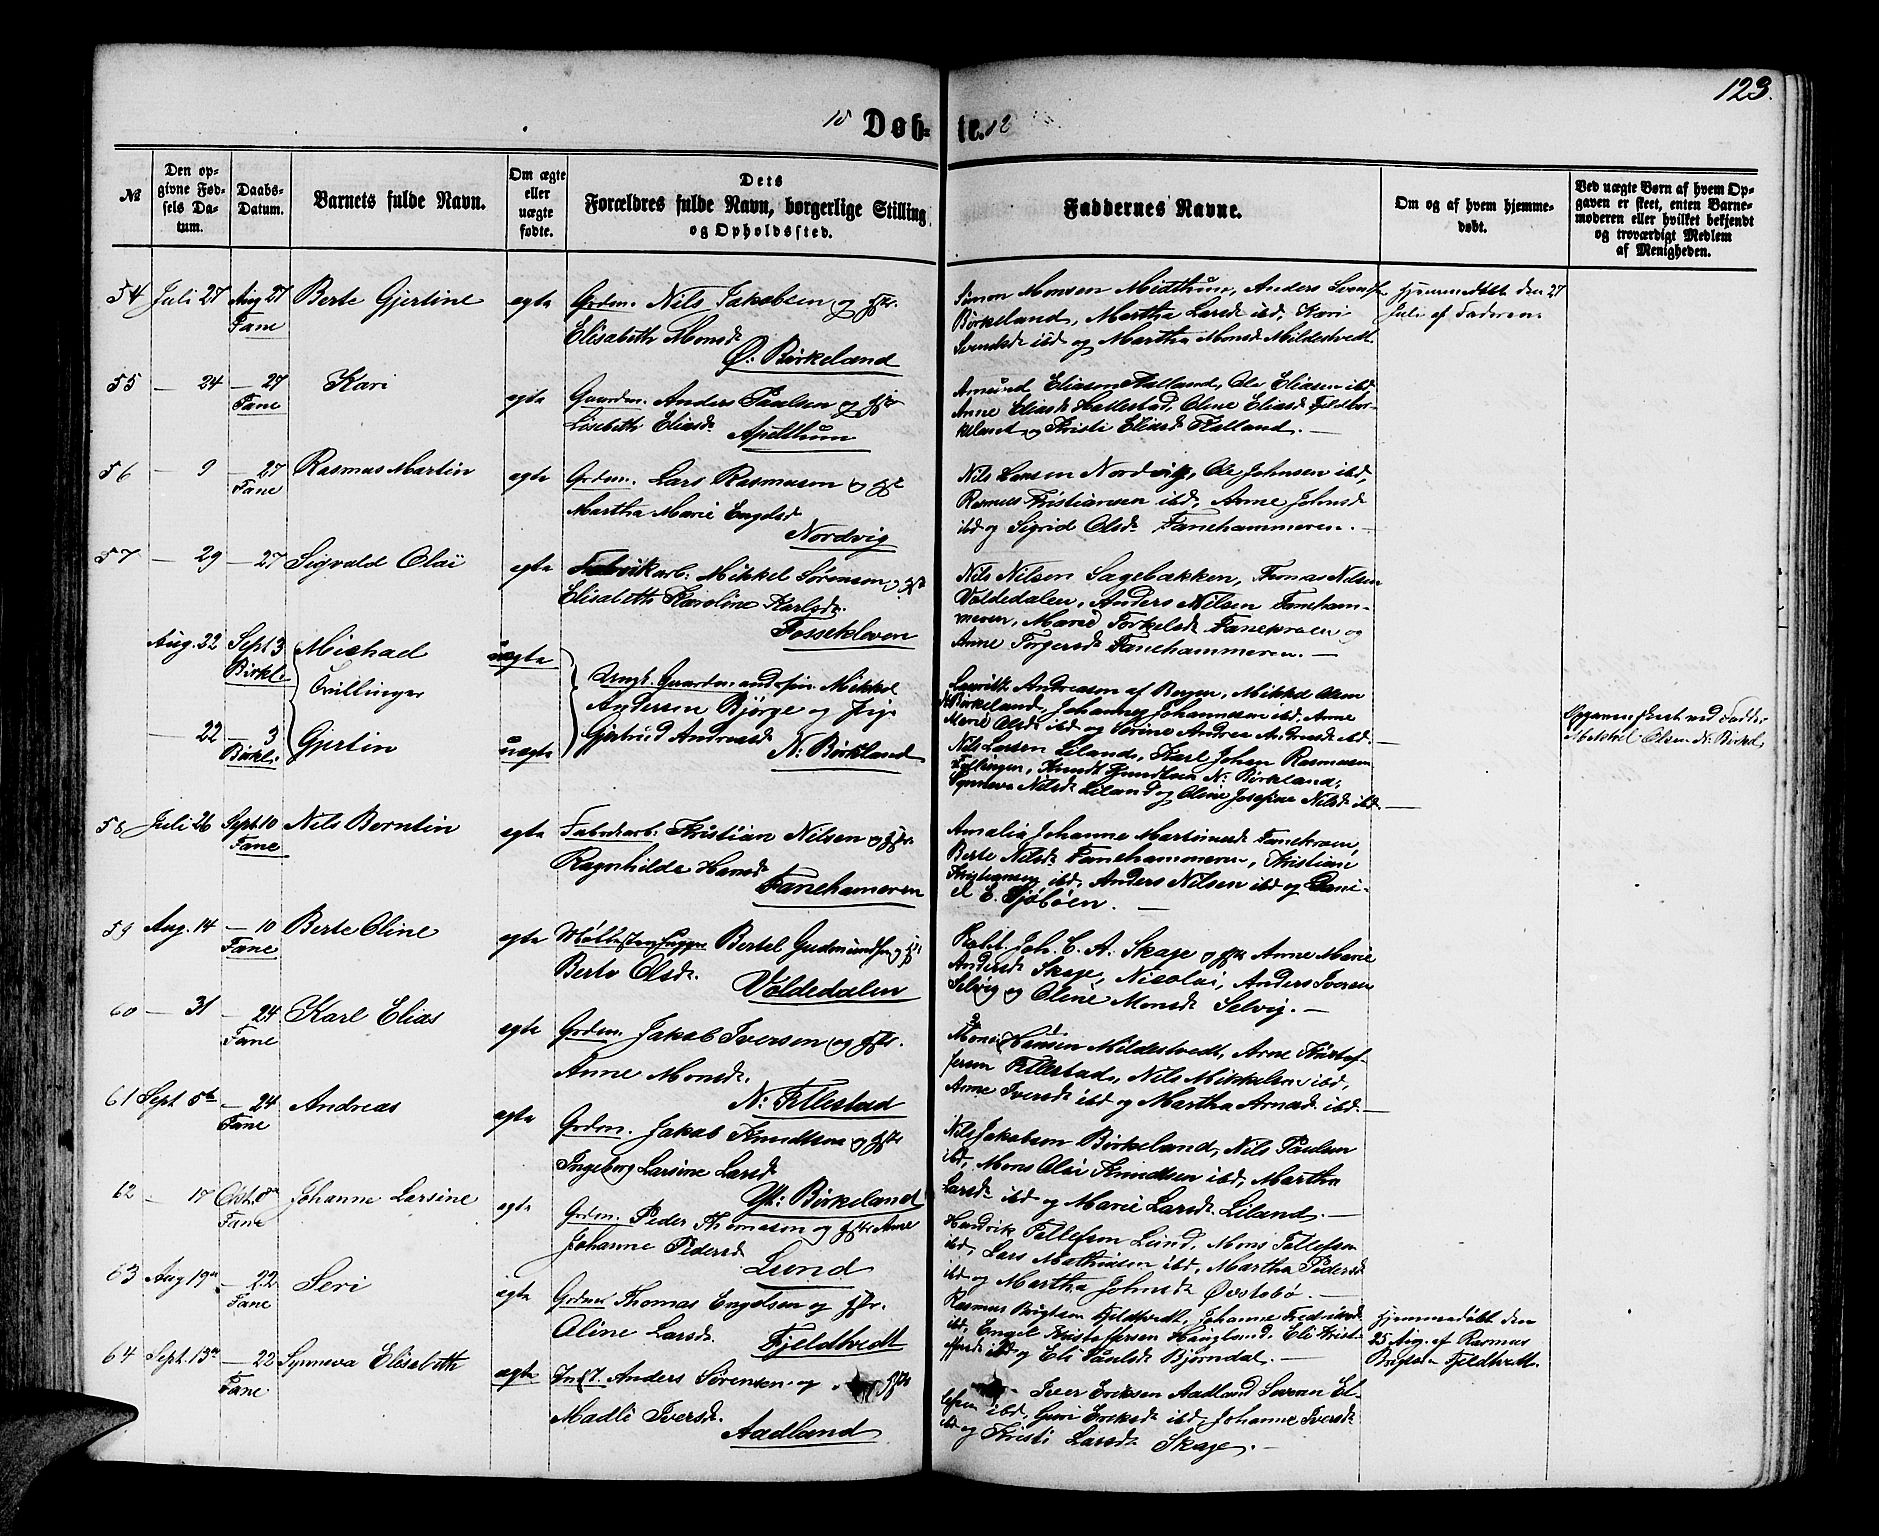 123.
18 Døb-te.
№
Den op-
givne Fød-
sels Da-
tum.
Daabs-
Datum.
Barnets fulde Navn.
Om ægte
eller
uægte
fødte.
Dets
Forældres fulde Navn, borgerlige Stilling
og Opholdssted.
Faddernes Navne.
Om og af hvem hjemme-
døbt.
Ved uægte Børn af hvem Op-
gaven er skeet, enten Barne-
moderen eller hvilket bekjendt
og troværdigt Medlem
af Menigheden.
54 Juli 27 Aug 27 Berte Gjertine egte Grdm. Nils Jakobsen og Hr.
Fane Elisabeth Monsd.
Ø. Birkeland
Simon Monsen Midthun, Anders Svends.
Birkeland, Martha Larsd. ibd, Kari
Svendsd. ibd og Martha Monsd. Mildestvedt
Hjemmedøbt den 27
Juli af Faderen.
55 — 24 — 27 Kari egte Gaardm. Anders Paulsen og
Fane Lisebeth Eliasd.
Apelthun
Amund Eliasen Kalland, Ole Eliasen ibd
Anne Eliasd. Hallestad, Oline Eliasd. Fjeldbir-
keland og Kristi Eliasd. Kalland. —
56 — 9 — 27 Rasmus Martin egte Grdm. Lars Rasmusen og
Fane Martha Marie Engelsd
Nordvig
Nils Larsen Nordvig, Ole Johnsen ibd,
Rasmus Kristiansen ibd, Anne Johnsd
ibd og Sigrid Olsd. Fanehammeren. —
57 — 29 — 27 Sigvald Olai egte Fabrikarb. Mikkel Sørensen og
Elisabeth Karoline Karlsd.
Fossekleven
Nils Nilsen Sagebakken, Thomas Nilsen
Voldedalen, Anders Nilsen Faneham-
meren, Marie Torkelsd. Fanekroen og
Anne Torgersd. Fanehammeren. —
Aug. 22 Sept 3 Michael uegte
Birkl. Tvillinger
— 22 — 3 Gjertin uegte
Birkl.
Ungk. Gaardm. and. sin. Mikkel
Andersen Bjørge og Pige
Gjertrud Andreasd.
N. Birkland
Lauritz Andreasen af Bergen, Mikkel Olsen
N. Birkeland, Johannes Johannesen ibd, Anne
Marie Olsd ibd og Sørine Andrea Andreasd ibd. —
Nils Larsen Liland, Karl Johan Rasmusen
Knudt N. Birkeland,
Synneva Nilsd. Liland og Oline Josefine Nilsd. ibd. —
Opgaven skeet ved Fadder
Mikkel Olsen N. Birkel.
58 Juli 26 Sept. 10 Nils Berntin egte Fabrikarb. Kristian Nilsen og
Fane Ragnhilde Hansd
Fanehameren
Amalia Johanne Martinusd. Fanekroen,
Berte Nilsd. Fanehammeren, Kristiane
Kristiansen ibd, Anders Nilsen ibd og Dani-
el E. Sjøbøen. —
59 Aug. 14 — 10 Berte Oline egte Møllestenhugger Bertel Gudmundsen og
Fane Berte Olsd.
Voldedalen
Joh. C. A. Skage og Anne Marie
Andersd Skage, Nicolai, Anders Iversen
Selvig og Oline Monsd. Selvig. —
60 — 31 — 24 Karl Elias egte Grdm. Jakob Iversen og
Fane Anne Monsd.
N. Titlestad
Mons Hansen Mildestvedt, Arne Kristof-
fersen Titlestad, Nils Mikkelsen ibd,
Anne Iversd ibd og Martha Arnesd. ibd. —
61 Sept. 5te — 24 Andreas egte Grdm. Jakob Knudtsen og
Fane Ingeborg Larsine Larsd
Birkeland
Nils Jakobsen Birkeland, Nils Paulsen
ibd, Mons Olai Knudtsen ibd, Martha
Larsd. ibd og Marie Larsd. Liland. —
62 — 17 Okt. 8de Johanne Larsine egte Grdm. Peder Thomasen og Anne
Fane Johanne Pedersd
Lund
Hendrik Tollefsen Lund, Mons Tollefsen
ibd, Lars Mathiasen ibd, Martha Pedersd.
ibd og Martha Johnsd. Øvstebø. —
63 Aug 19de — 22 Seri egte Grdm. Thomas Engelsen og
Fane Oline Larsd.
Fjeldtvedt
Rasmus Brigtsen Fjeldtvedt, Johanne Fredriksd.
ibd, Engel Kristoffersen Haugland, Eli Krist-
offersd ibd og Eli Paulsd. Bjørndal. —
Hjemmedøbt den
25 Aug. af Rasmus
Brigtsen Fjeldtvedt.
64 Sept. 13de — 22 Synneva Elisabeth egte Inds. Anders Sørensen og
Fane Madli Iversd.
Aadland
Iver Eriksen Aadland Søren El-
lefsen ibd, Guri Eriksd. ibd, Johanne Iversd.
ibd og Kristi Larsd. Skage. —